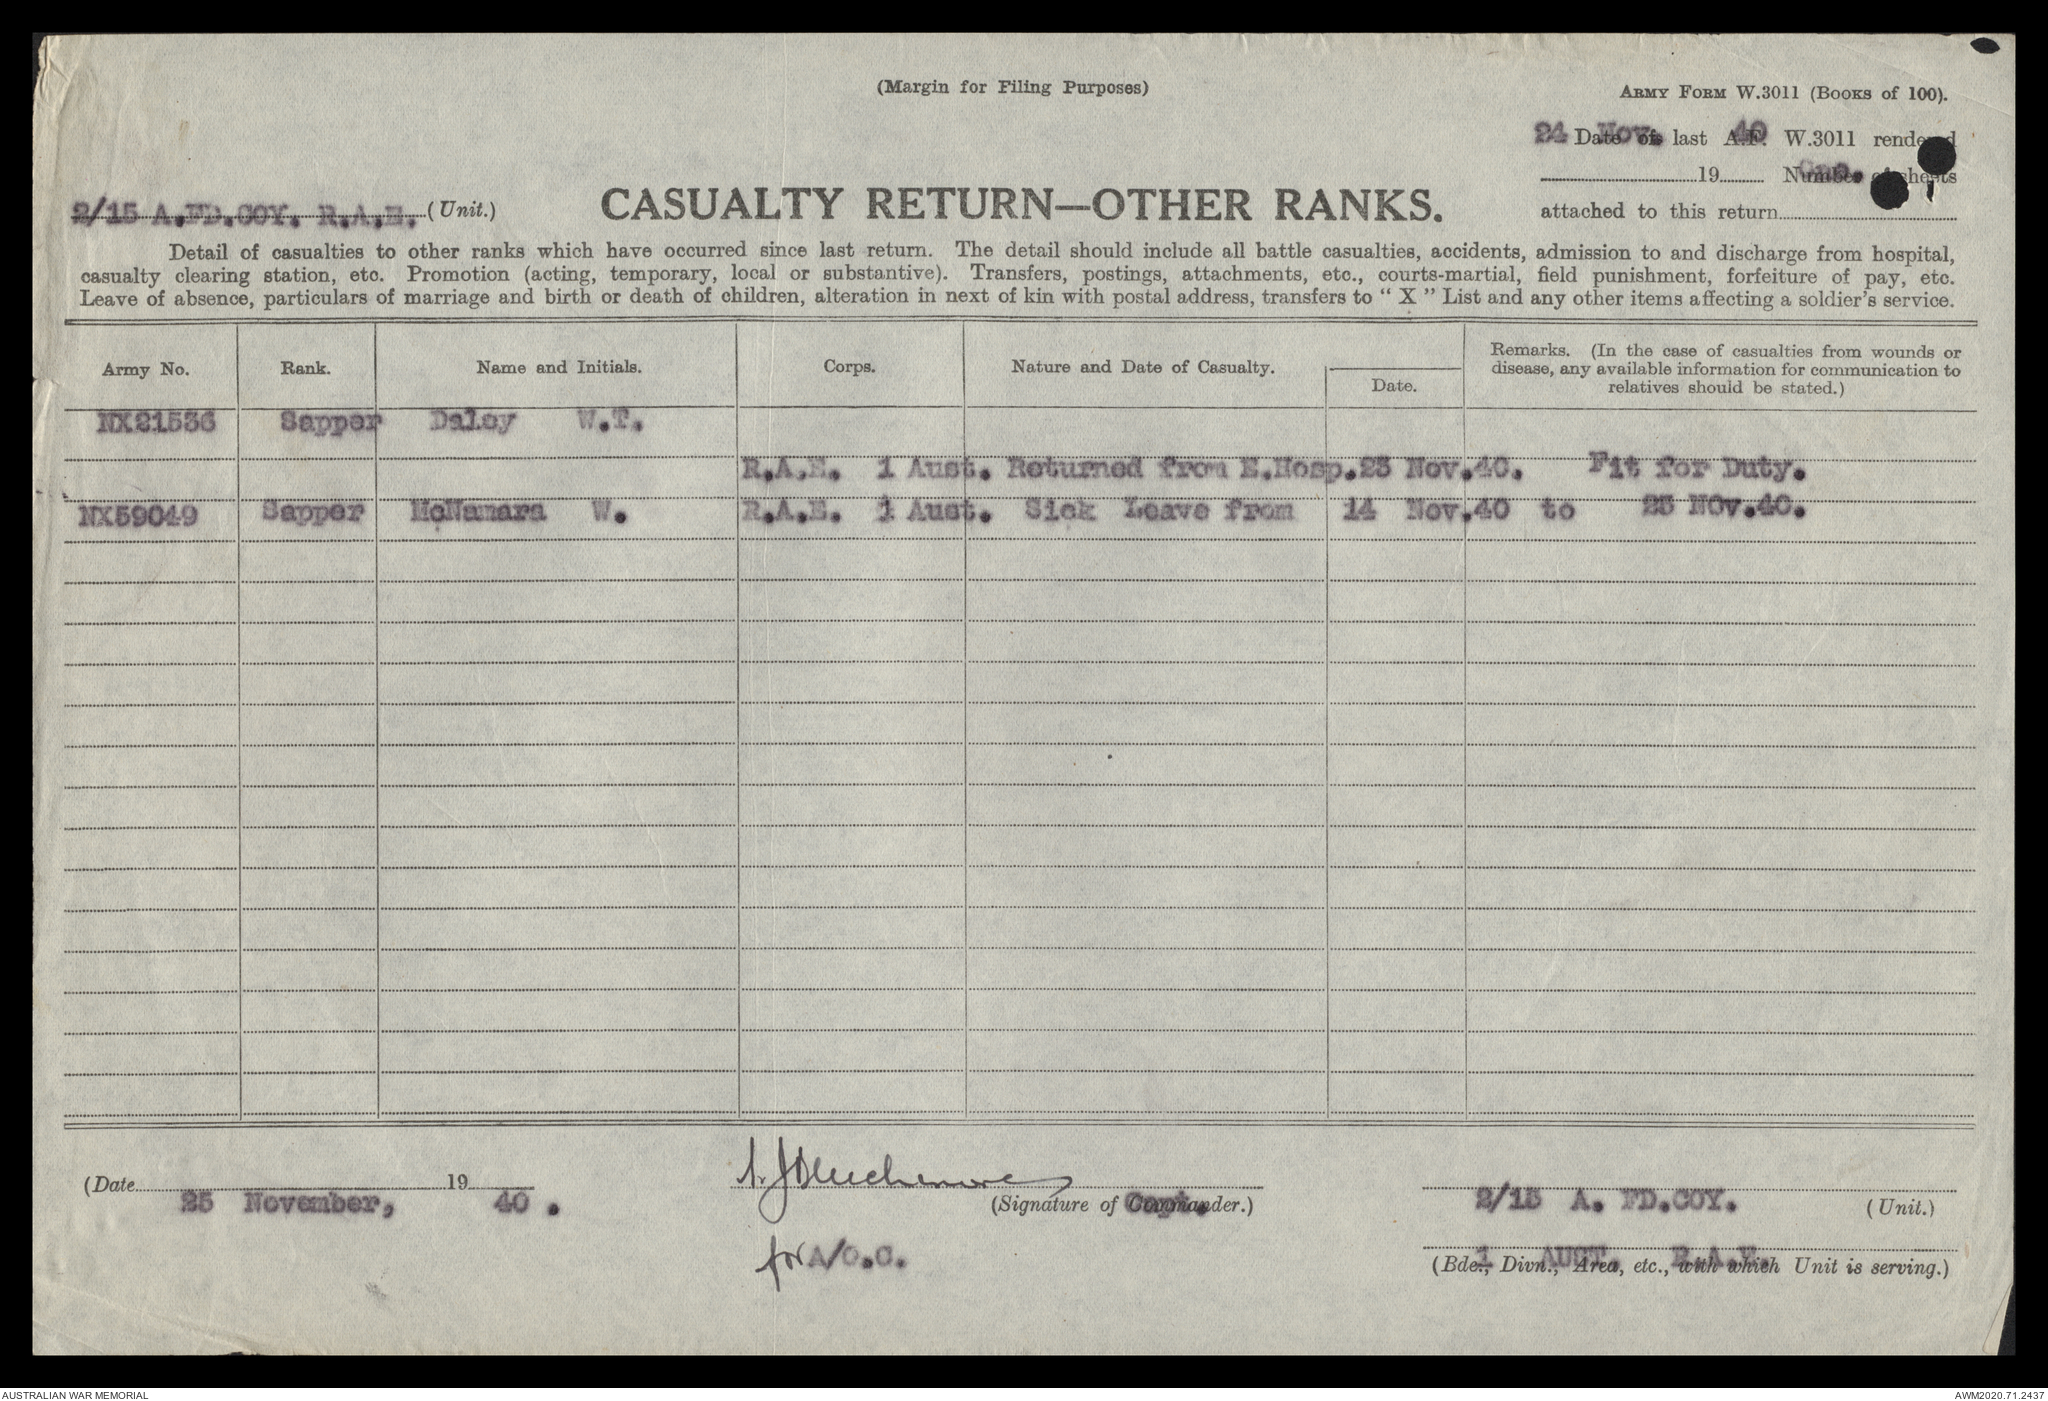 (Margin for Filing Purposes)
ARMY FORM W.3011 (BOOKS of 100).
24 Nov. 40
Date of last A.F. W.3011 rendered
19 Number of sheets
attached to this return
2/15 A.FD.COY. R.A.E. (Unit.)
CASUALTY RETURN—OTHER RANKS.
Detail of casualties to other ranks which have occurred since last return. The detail should include all battle casualties, accidents, admission to and discharge from hospital,
casualty clearing station, etc. Promotion (acting, temporary, local or substantive). Transfers, postings, attachments, etc., courts-martial, field punishment, forfeiture of pay, etc.
Leave of absence, particulars of marriage and birth or death of children, alteration in next of kin with postal address, transfers to “ X ” List and any other items affecting a soldier's service.
Army No. Rank. Name and Initials. Corps. Nature and Date of Casualty. Date. Remarks. (In the case of casualties from wounds or
disease, any available information for communication to
relatives should be stated.)
NX21536 Sapper Daley W.T.
R.A.E. 1 Aust. Returned from E.Hosp.23 Nov.40. Fit for Duty.
NX59049 Sapper McNamara W. R.A.E. 1 Aust. Sick Leave from 14 Nov.40 to 23 NOv.40.
(Date 19
25 November, 40 .
(Signature of Commander.)
Capt.
for A/O.C.
2/15 A. FD.COY. (Unit.)
1 AUST. R.A.E.
(Bde., Divn., Area, etc., with which Unit is serving.)
AUSTRALIAN WAR MEMORIAL
AWM2020.71.2437